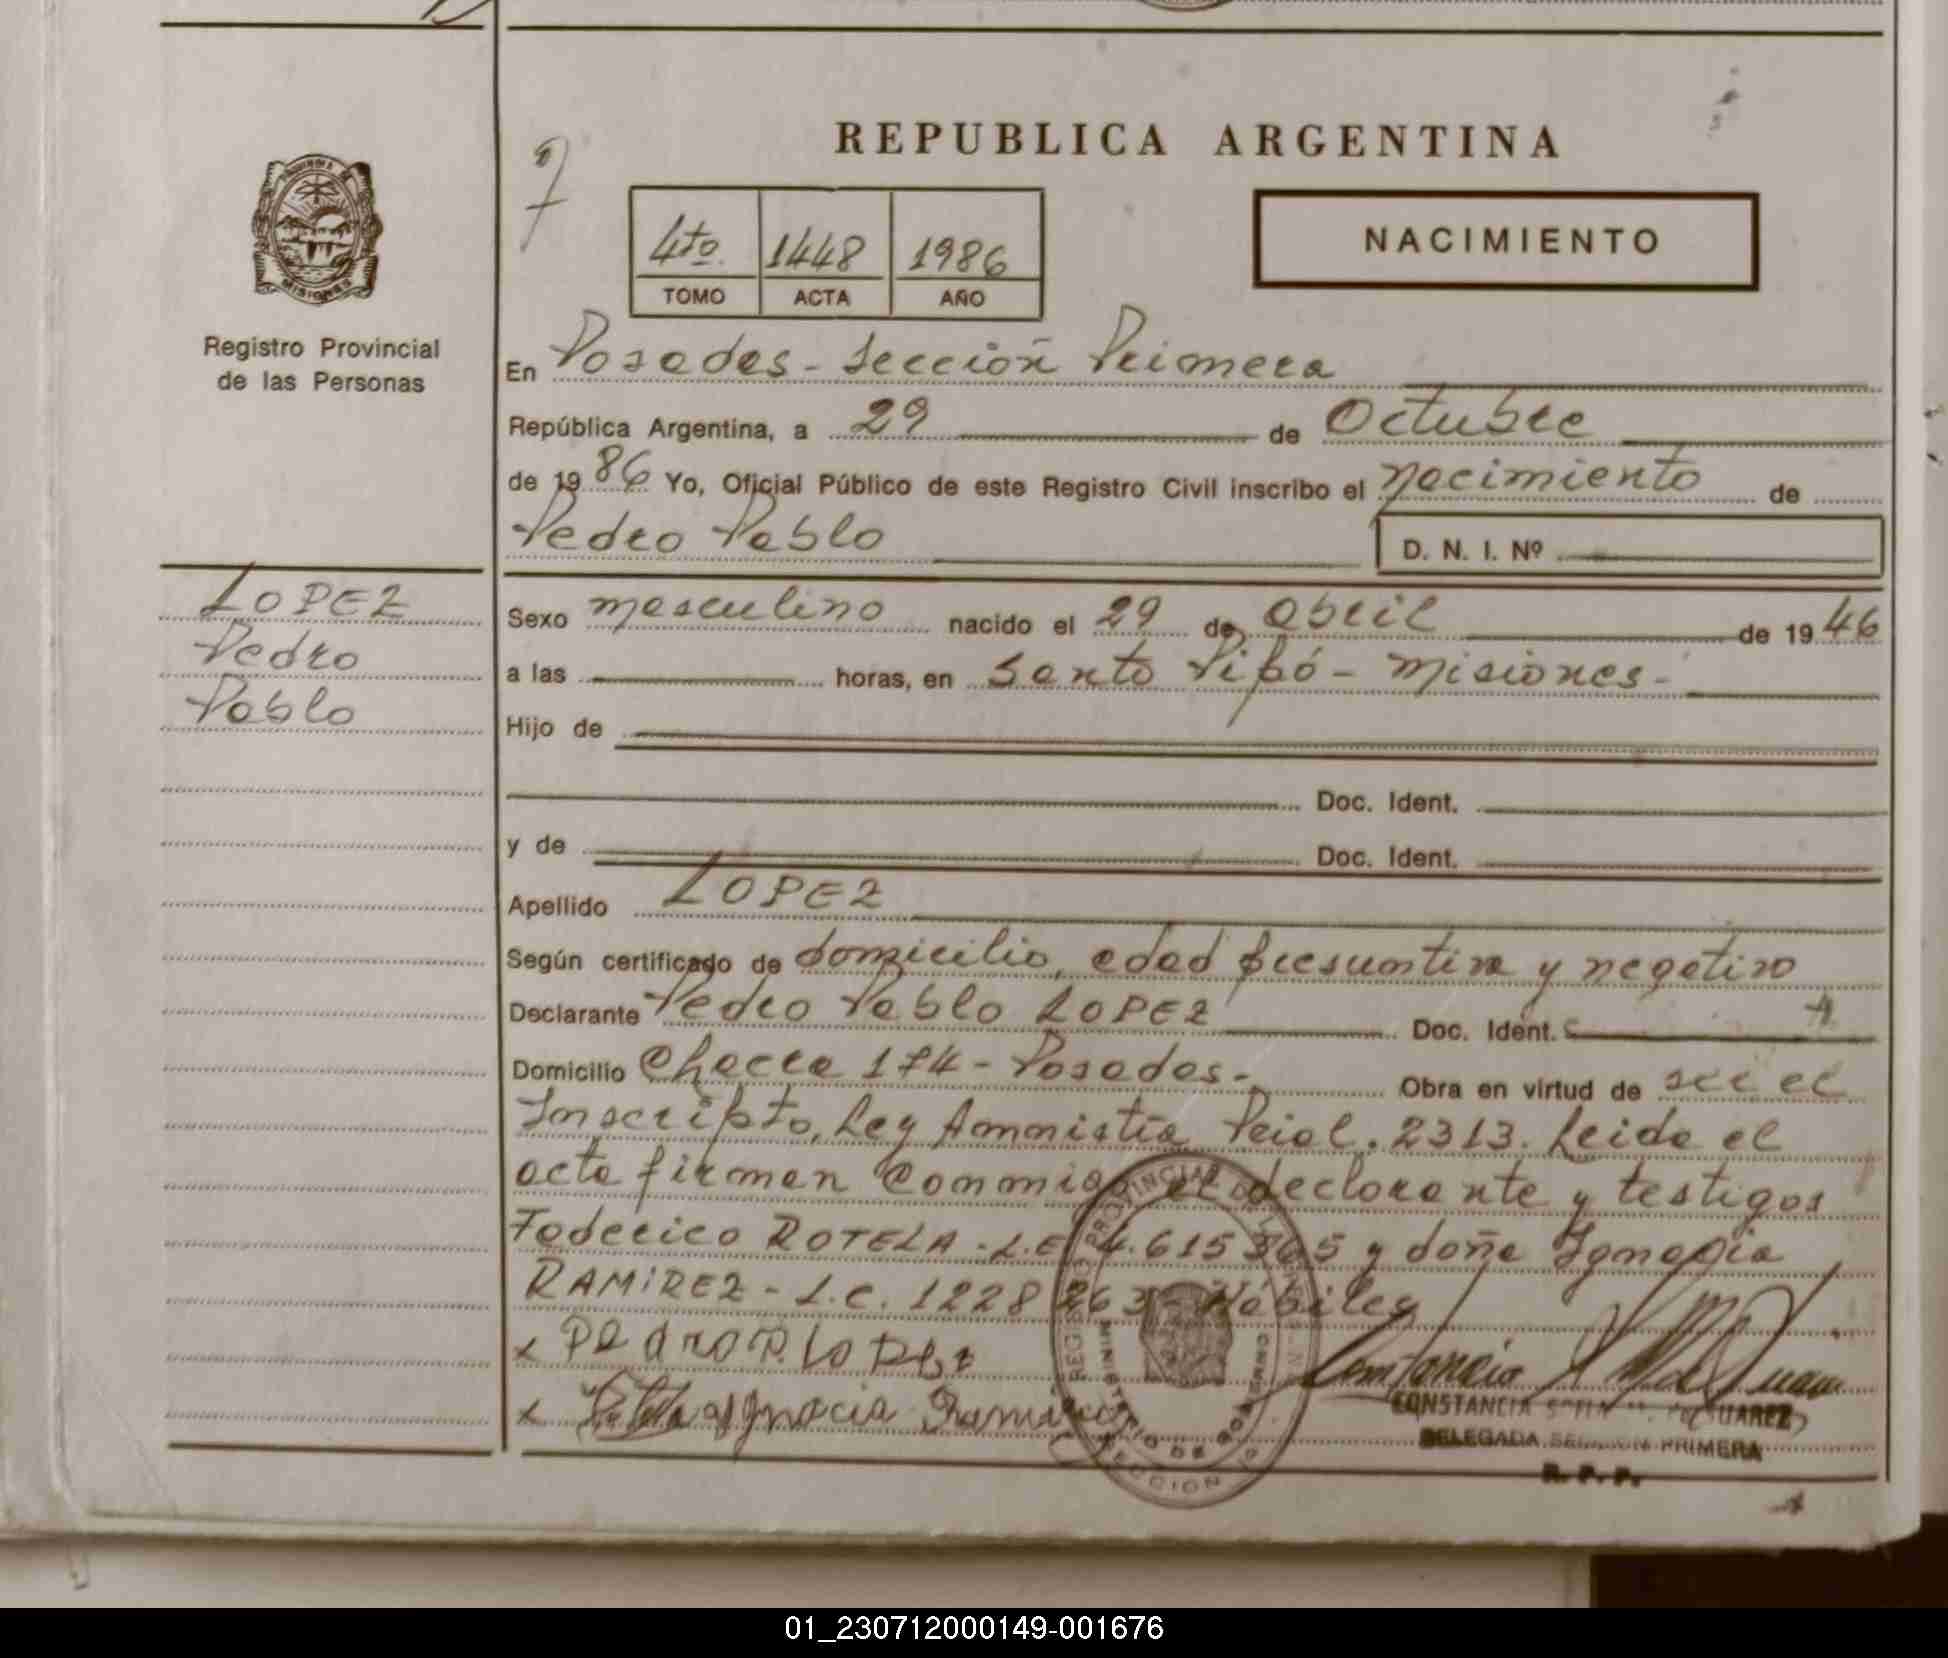 REPUBLICA ARGENTINA
4to. 1448 1986
TOMO ACTA AÑO
NACIMIENTO
MISIONES
Registro Provincial
de las Personas
En Posadas - Sección Primera
República Argentina, a 29 de Octubre
de 1986 Yo, Oficial Público de este Registro Civil inscribo el Nacimiento de
Pedro Pablo
D. N. I. Nº
LOPEZ
Pedro
Pablo
Sexo masculino nacido el 29 de abril de 1946
a las horas, en Santo Pipó - Misiones -
Hijo de
Doc. Ident.
y de Doc. Ident.
Apellido LOPEZ
Según certificado de domicilio, edad presuntiva y negativo
Declarante Pedro Pablo LOPEZ Doc. Ident.
Domicilio Chacra 174 - Posadas - Obra en virtud de ser el
Inscripto, Ley Amnistía Pcial. 2313. Leida el
acta firman conmigo el declarante y testigos
Federico ROTELA - L.E. 4.615 365 y doña Ignacia
RAMIREZ - L.C. 1228 263 - Hábiles
x Pedro P. Lopez
x Ignacia Ramirez
REGISTRO PROVINCIAL DE LAS PERSONAS
MINISTERIO DE GOBIERNO
SECCION
CONSTANCIA M. de SUAREZ
DELEGADA SECCION PRIMERA
R. P. P.
01_230712000149-001676